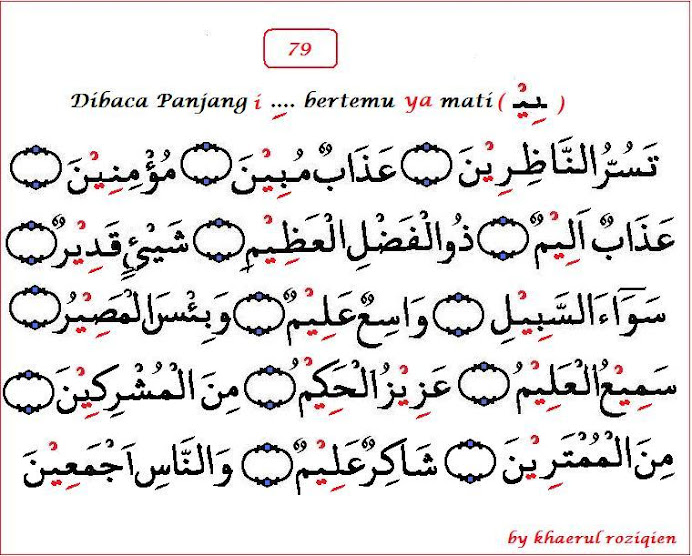 79
Dibaca Panjang i .... bertemu ya mati ( ـِيْـ )
تَسُرُّ النَّاظِرِيْنَ عَذَابٌ مُبِيْنَ مُؤْمِنِيْنَ
عَذَابٌ اَلِيْمٌ ذُو الْفَضْلِ الْعَظِيْمِ شَيْئٍ قَدِيْرٌ
سَوَآءَ السَّبِيْلِ وَاسِعٌ عَلِيْمٌ وَبِئْسَ الْمَصِيْرُ
سَمِيْعُ الْعَلِيْمُ عَزِيْزُ الْحَكِيْمُ مِنَ الْمُشْرِكِيْنَ
مِنَ الْمُمْتَرِيْنَ شَاكِرٌ عَلِيْمٌ وَالنَّاسِ اَجْمَعِيْنَ
by khaerul roziqien